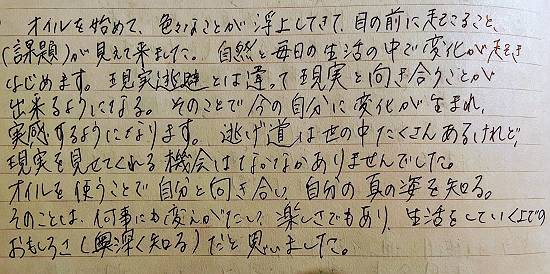 オイルを始めて、色々なことが浮上してきて、目の前に起こること、
(課題)が見えて来ました。自然と毎日の生活の中で変化が起き
はじめます。現実逃避とは違って現実と向き合うことが
出来るようになる。そのことで今の自分に変化が生まれ、
実感するようになります。逃げ道は世の中たくさんあるけれど、
現実を見せてくれる機会はなかなかありませんでした。
オイルを使うことで自分と向き合い、自分の真の姿を知る。
そのことは、何事にも変えがたい、楽しさでもあり、生活をしていく上での
おもしろさ(興深く知る)だと思いました。